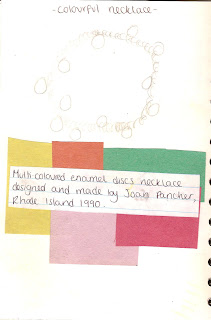 -colourful necklace-
Multi-coloured enamel discs necklace
designed and made by Joan Pancher,
Rhode Island 1990.